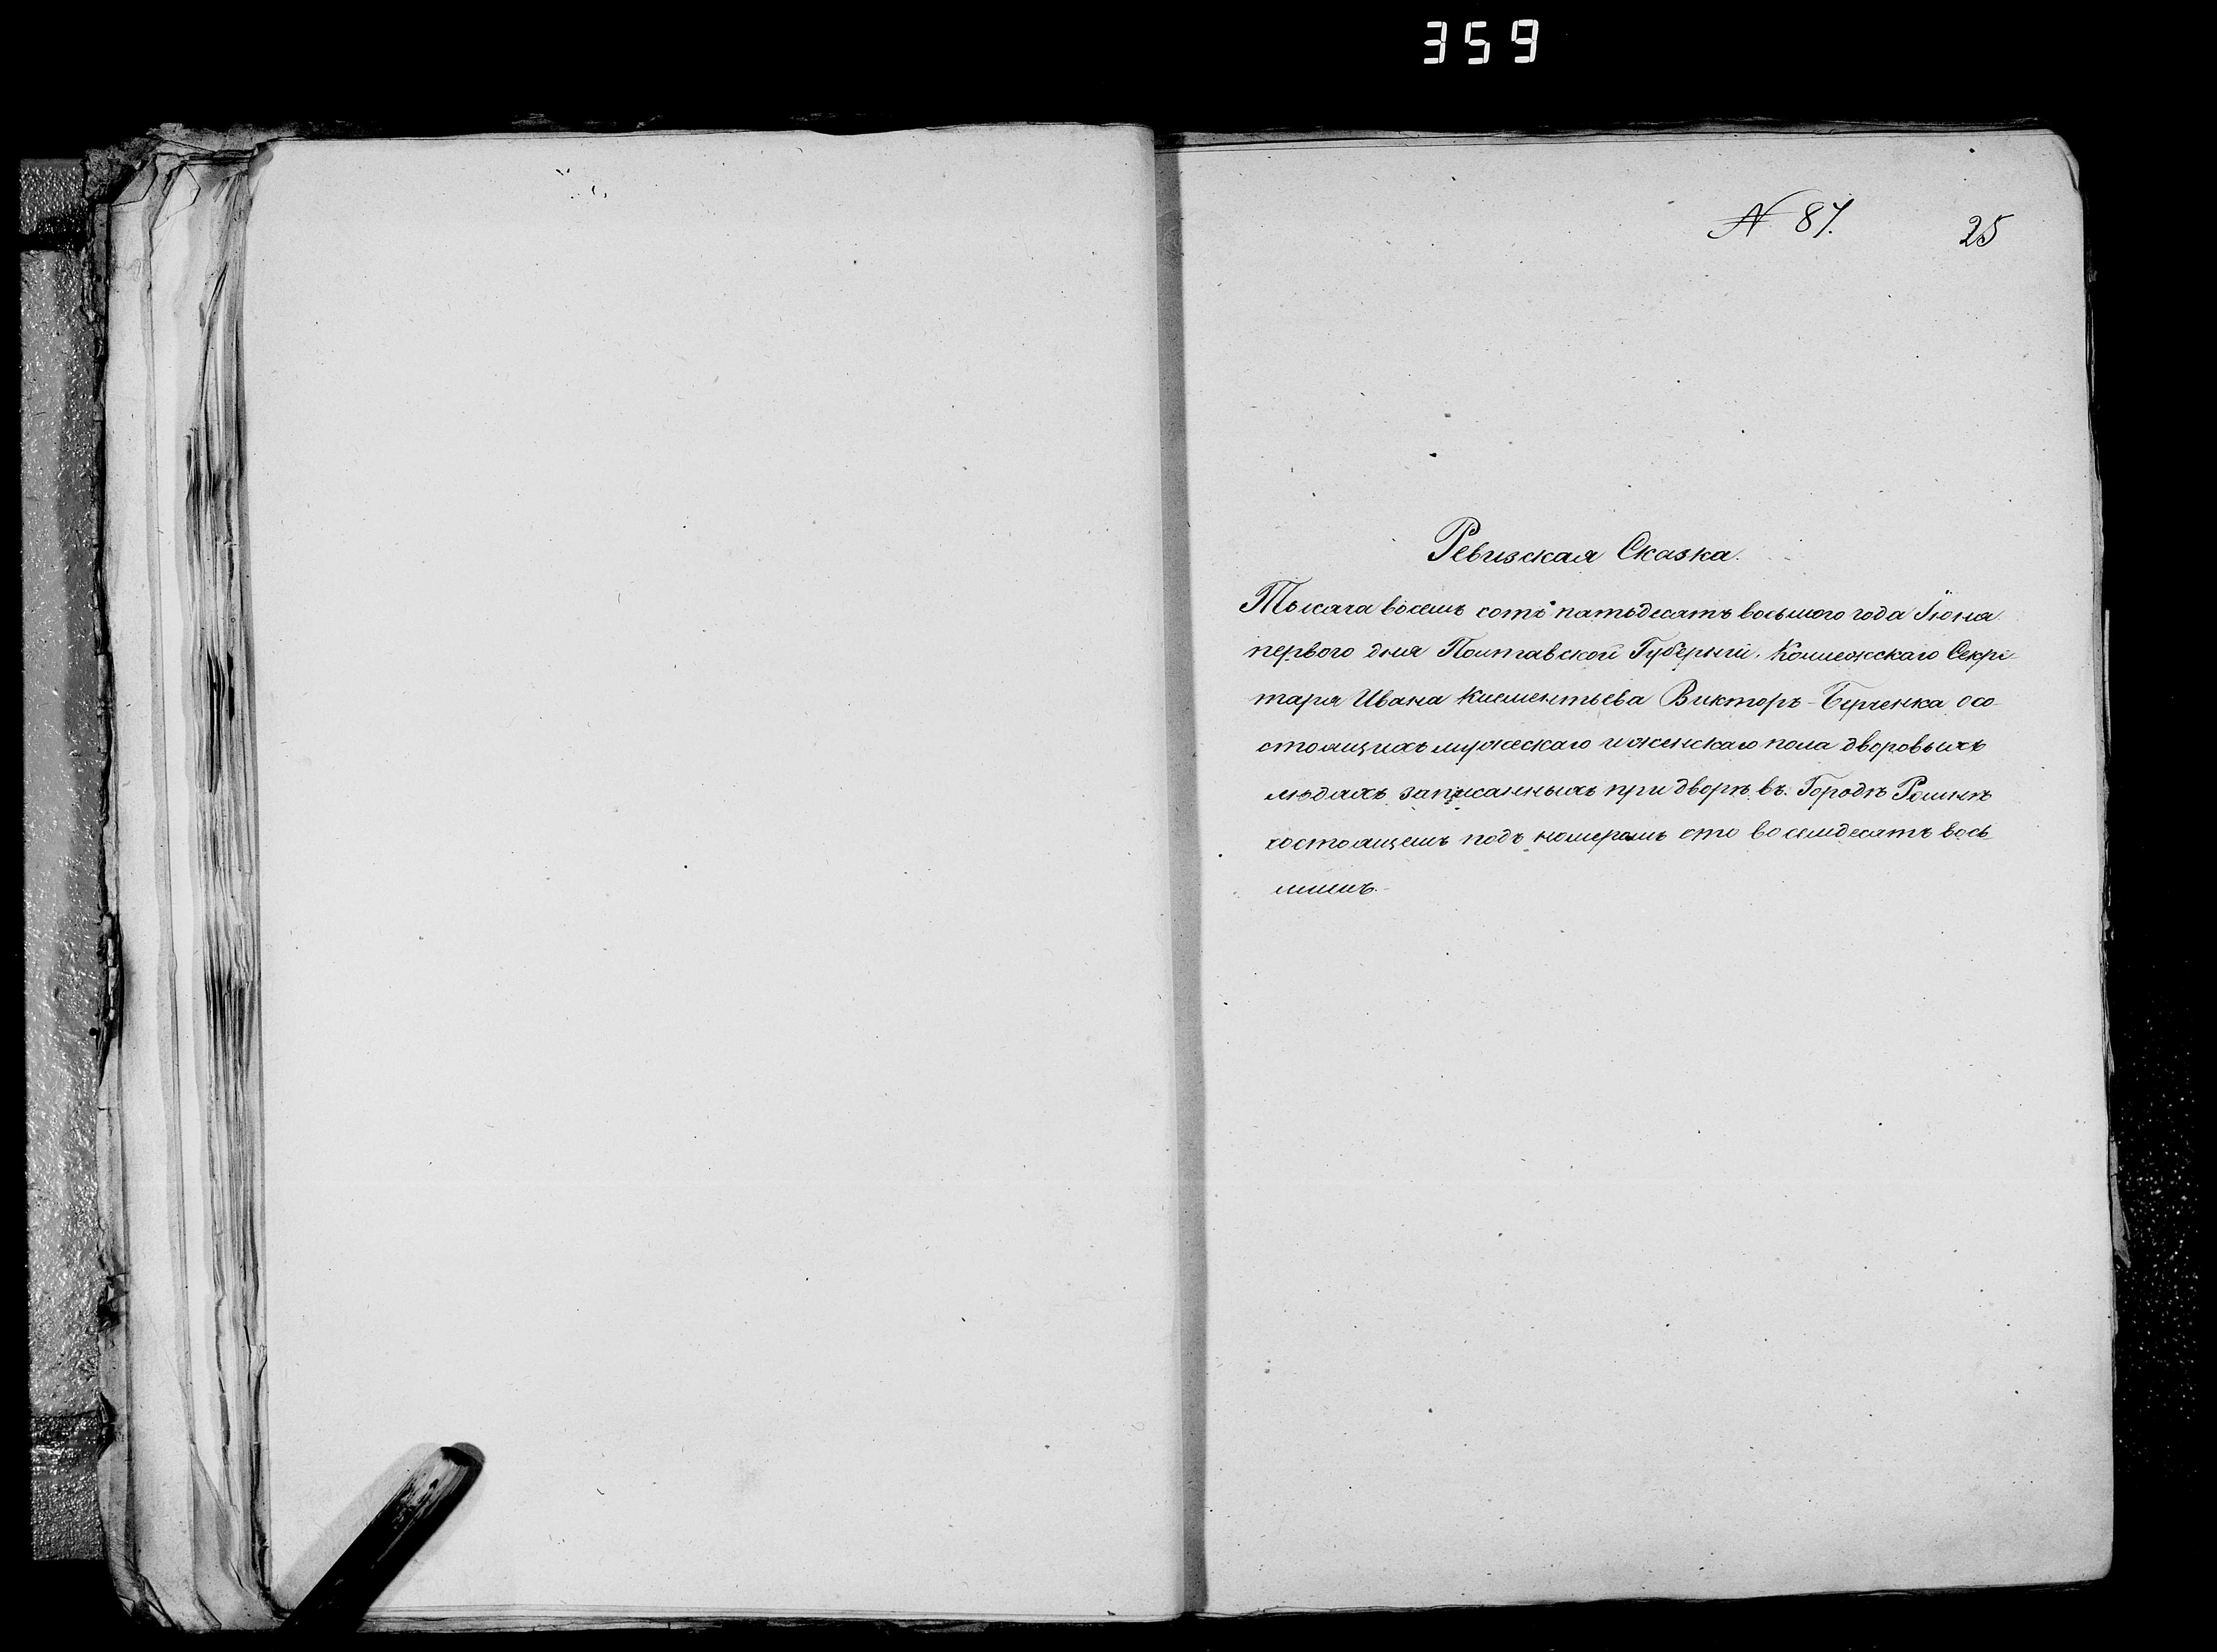 359
№ 87.
25
Ревизская Сказка.
Тысяча восемь сотъ пятьдесятъ восьмого года Іюня
перваго дня Полтавской Губерніи, Коллежскаго Секре-
таря Ивана Климентьева Викторъ-Берченка о со-
стоящихъ мужескаго и женскаго пола дворовыхъ
людяхъ записанныхъ при дворѣ въ Городѣ Ромнѣ
состоящемъ подъ номеромъ сто восемдесятъ вось
мымъ.